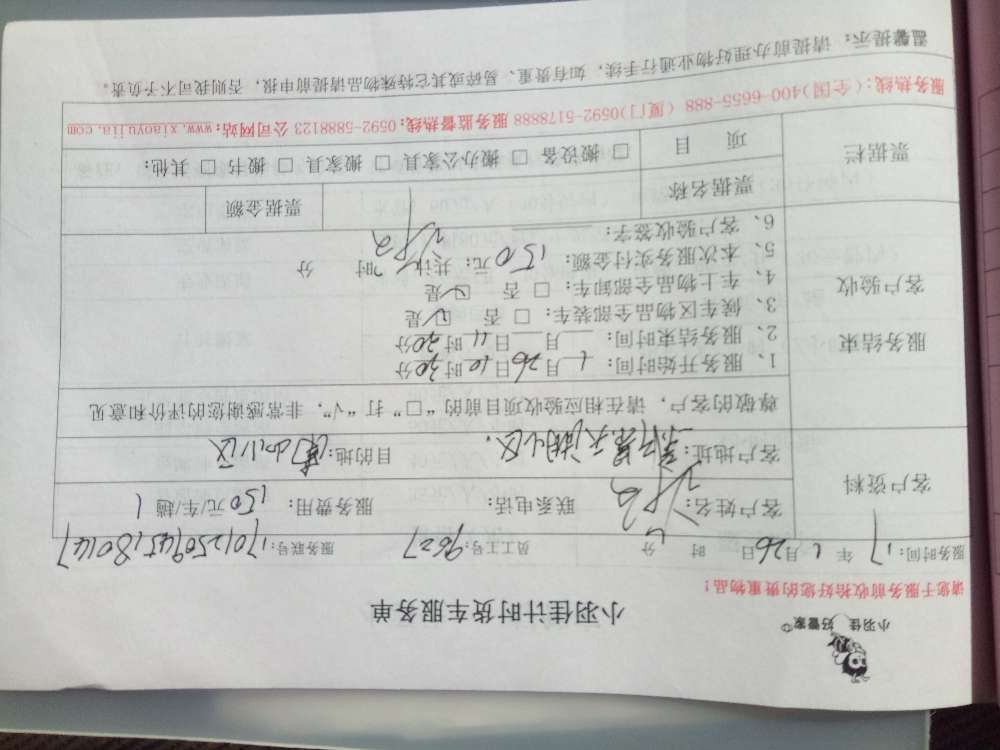 小羽佳 好管家
小羽佳计时货车服务单
请您于服务前收拾好您的贵重物品!
服务时间: 17 年 1 月 26 日 时 分 员工工号: 9627 服务联号: 1701250945180147
客户资料
客户姓名: 联系电话: 服务费用: 150 元/车/趟
客户地址: 目的地:
尊敬的客户,请在相应验收项目前的“□”打“√”,非常感谢您的评价和意见
服务结束
客户验收
1、服务开始时间: 1 月 26 日 10 时 30 分
2、服务结束时间: 月 日 11 时 30 分
3、候车区物品全部车装车: □ 否 ☑ 是
4、车上物品全部卸车: □ 否 ☑ 是
5、本次服务实付金额: 150 元; 共计 1 时 分
6、客户验收签字:
票据栏
票据名称 票据金额
项 目 □ 搬设备 □ 搬办公家具 □ 搬家具 □ 搬书 □ 其他:
服务热线:(全国)400-6655-888 (厦门)0592-5178888 服务监督热线:0592-5888123 公司网站:www.xiaoyujia.com
温馨提示: 请提前办理好物业通行手续,如有贵重、易碎或其它特殊物品请提前申报,否则我司不予负责。